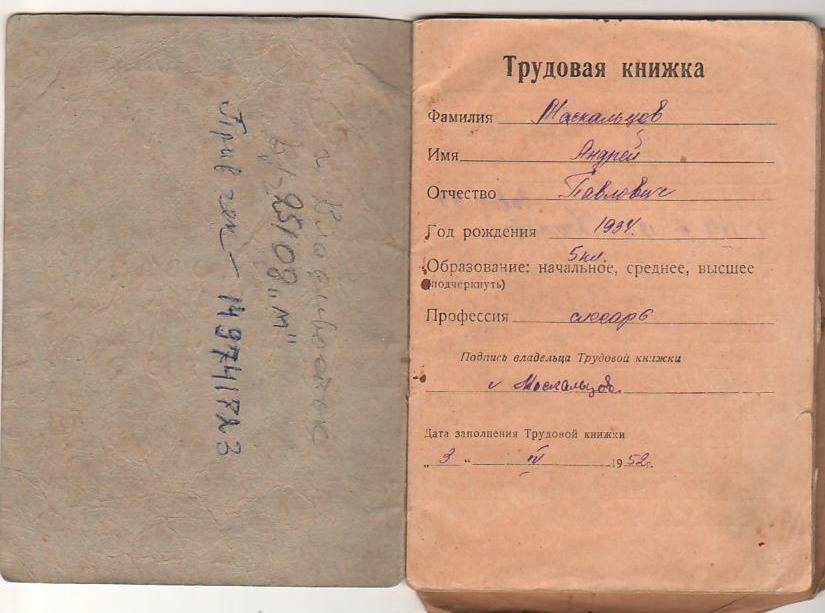 г Владивосток
в/ч 25108 "м"
Прив чеп — 14974172 3
Трудовая книжка
Фамилия Маскальцов
Имя Андрей
Отчество Павлович
Год рождения 1934.
5 кл.
Образование: начальное, среднее, высшее
(подчеркнуть)
Профессия слесарь
Подпись владельца Трудовой книжки
Москальцов
Дата заполнения Трудовой книжки
„ 3 “ IV 1952г.